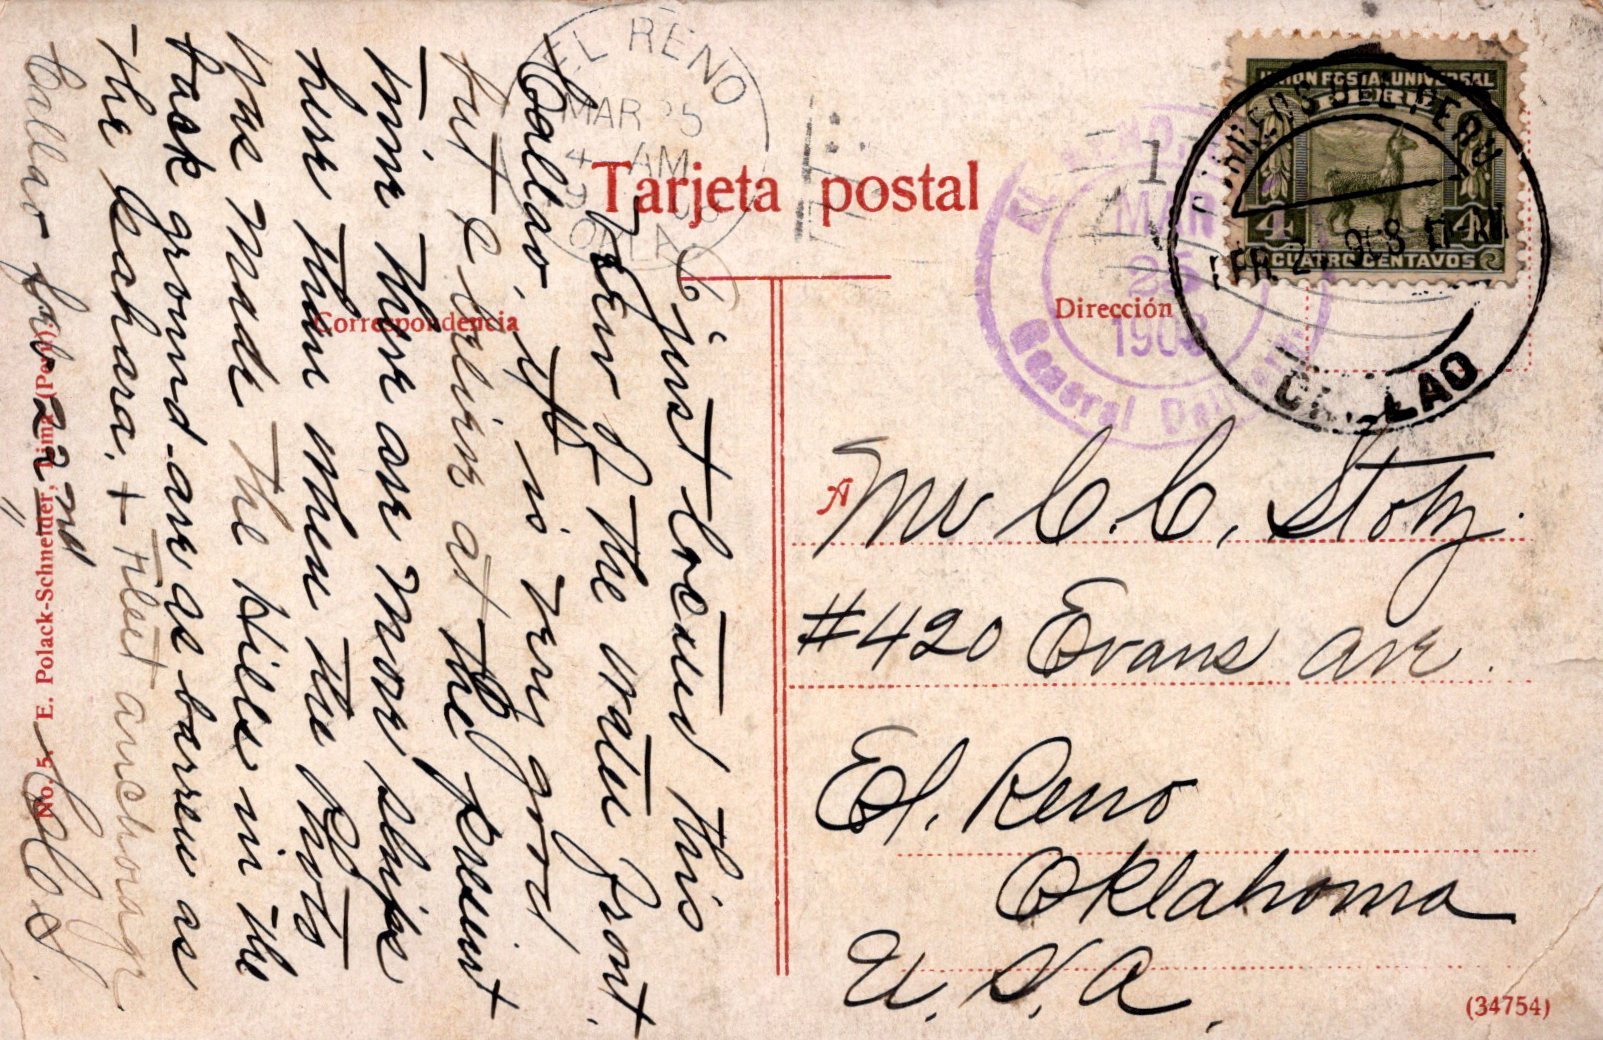 Tarjeta postal
Correspondencia
Dirección
UNION POSTAL UNIVERSAL
PERU
4 4
CUATRO CENTAVOS
CORREOS DEL PERU
1908
CALLAO
EL RENO
MAR 25
4 AM
OKLA
MAR
25
1908
General Delivery
1
A Mr C. C. Stotz.
#420 Evans Ave.
El Reno
Oklahoma
U.S.A.
I just loctud this
view of the water front.
Callao, it is very good
but I belive at the present
time there are more ships
here than when the photo
was made the Hills in the
back ground are as barren as
the Sahara. + Fleet anchorage
Callao Feb 22nd
No. 5. E. Polack-Schneider, Lima (Perú).
(34754)